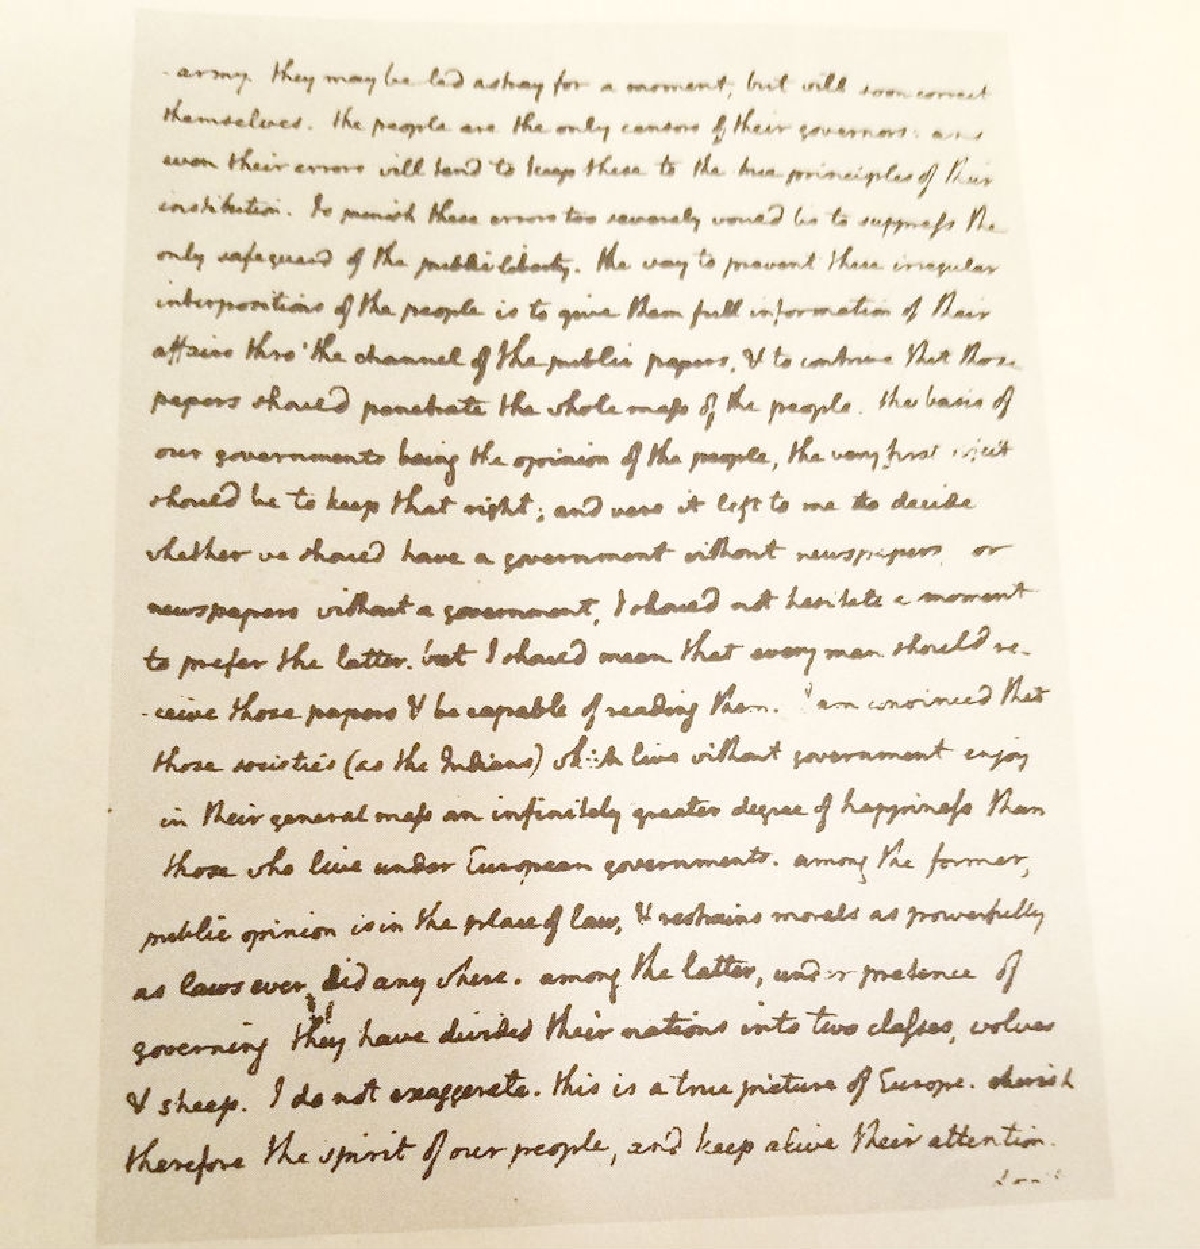 army. they may be led astray for a moment, but will soon correct
themselves. the people are the only censors of their governors: and
even their errors will tend to keep these to the true principles of their
institution. To punish these errors too severely would be to suppress the
only safeguard of the public liberty. the way to prevent these irregular
interpositions of the people is to give them full information of their
affairs thro' the channel of the public papers, & to contrive that those
papers should penetrate the whole mass of the people. the basis of
our governments being the opinion of the people, the very first object
should be to keep that right; and were it left to me to decide
whether we should have a government without newspapers, or
newspapers without a government, I should not hesitate a moment
to prefer the latter. but I should mean that every man should re-
ceive those papers & be capable of reading them. I am convinced that
those societies (as the Indians) which live without government enjoy
in their general mass an infinitely greater degree of happiness than
those who live under European governments. among the former,
public opinion is in the place of law, & restrains morals as powerfully
as laws ever did any where. among the latter, under pretence of
governing they have divided their nations into two classes, wolves
& sheep. I do not exaggerate. this is a true picture of Europe. cherish
therefore the spirit of our people, and keep alive their attention.